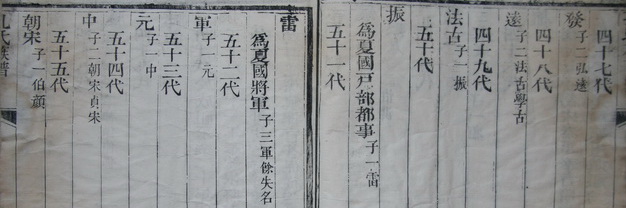 四十七代
發子二弘遠
四十八代
遠子二法古學古
四十九代
法古子一振
五十代
振
為夏國戶部都事子一雷
五十一代
雷
為夏國將軍子三軍餘失名
五十二代
軍子元
五十三代
元子中
五十四代
中子二朝宋貞宋
五十五代
朝宋子一伯顏